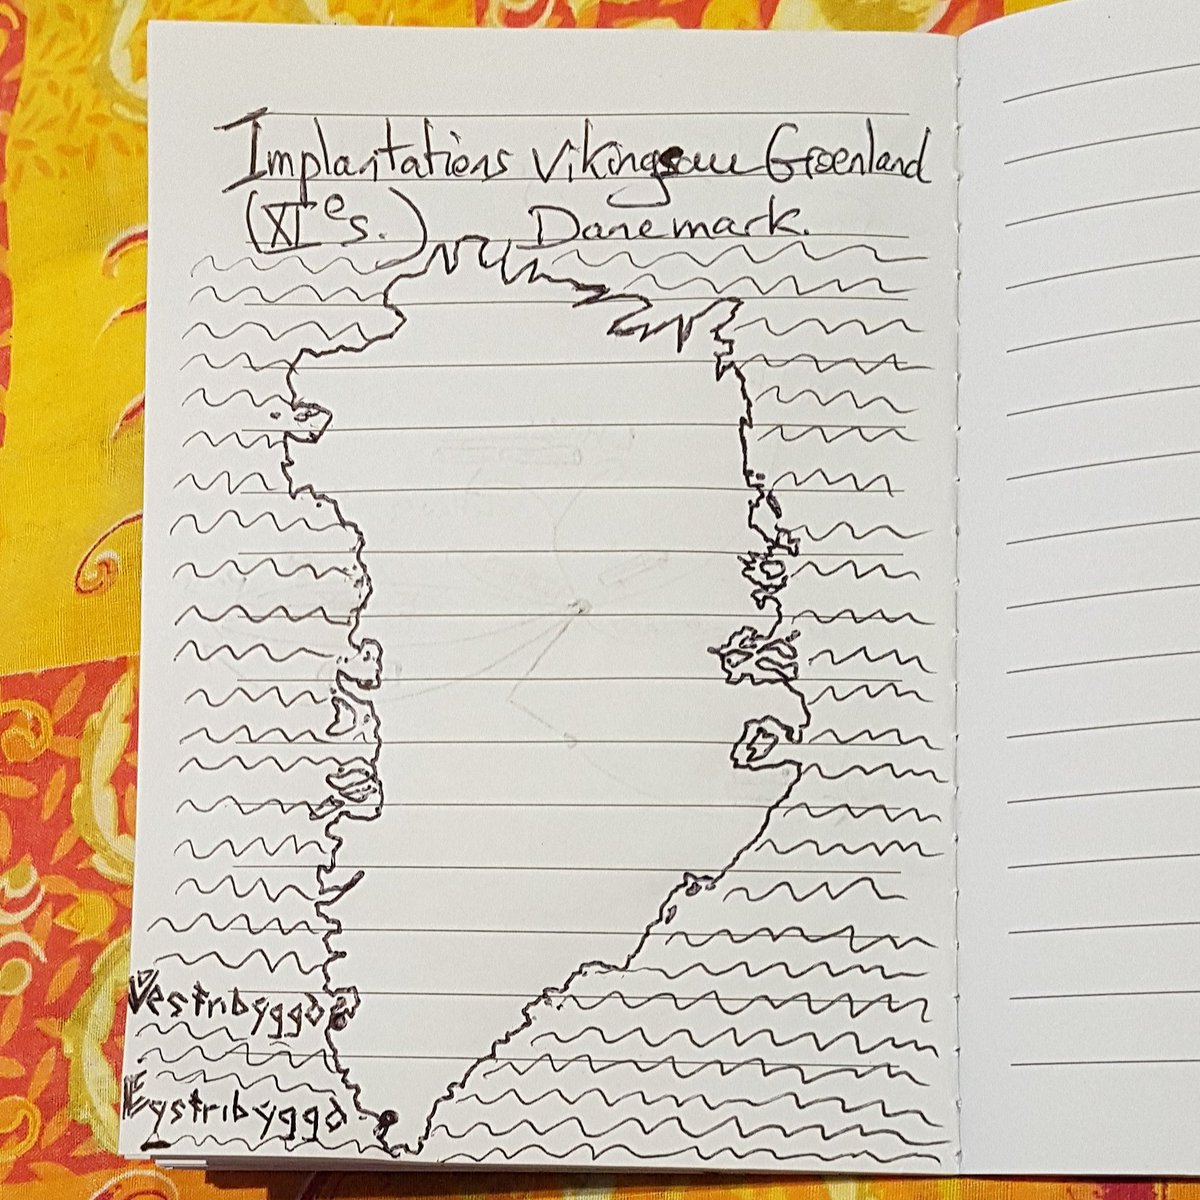 Implantations Vikings au Groenland
(XIe s.) Danemark.
Vestribyggð
Eystribyggð